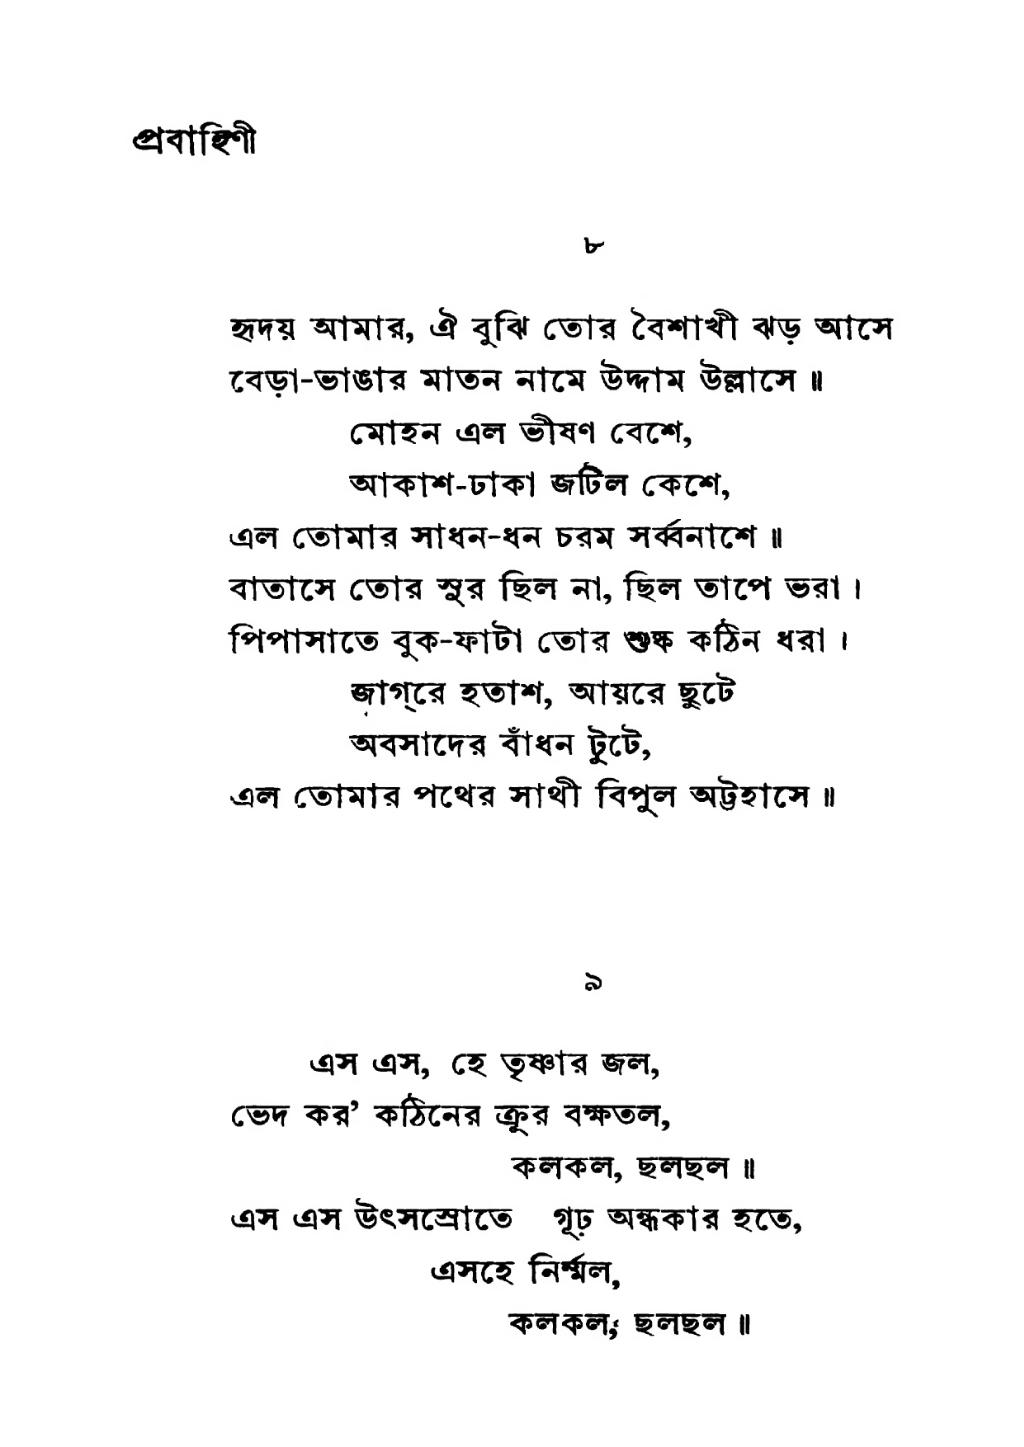 প্রবাহিণী
৮
হৃদয় আমার, ঐ বুঝি তোর বৈশাখী ঝড় আসে
বেড়া-ভাঙার মাতন নামে উদ্দাম উল্লাসে ॥
মোহন এল ভীষণ বেশে,
আকাশ-ঢাকা জটিল কেশে,
এল তোমার সাধন-ধন চরম সর্ব্বনাশে ॥
বাতাসে তোর সুর ছিল না, ছিল তাপে ভরা ।
পিপাসাতে বুক-ফাটা তোর শুষ্ক কঠিন ধরা ।
জাগ্‌রে হতাশ, আয়রে ছুটে
অবসাদের বাঁধন টুটে,
এল তোমার পথের সাথী বিপুল অট্টহাসে ॥
৯
এস এস, হে তৃষ্ণার জল,
ভেদ কর’ কঠিনের ক্রূর বক্ষতল,
কলকল, ছলছল ॥
এস এস উৎসস্রোতে গূঢ় অন্ধকার হতে,
এসহে নির্ম্মল,
কলকল; ছলছল ॥